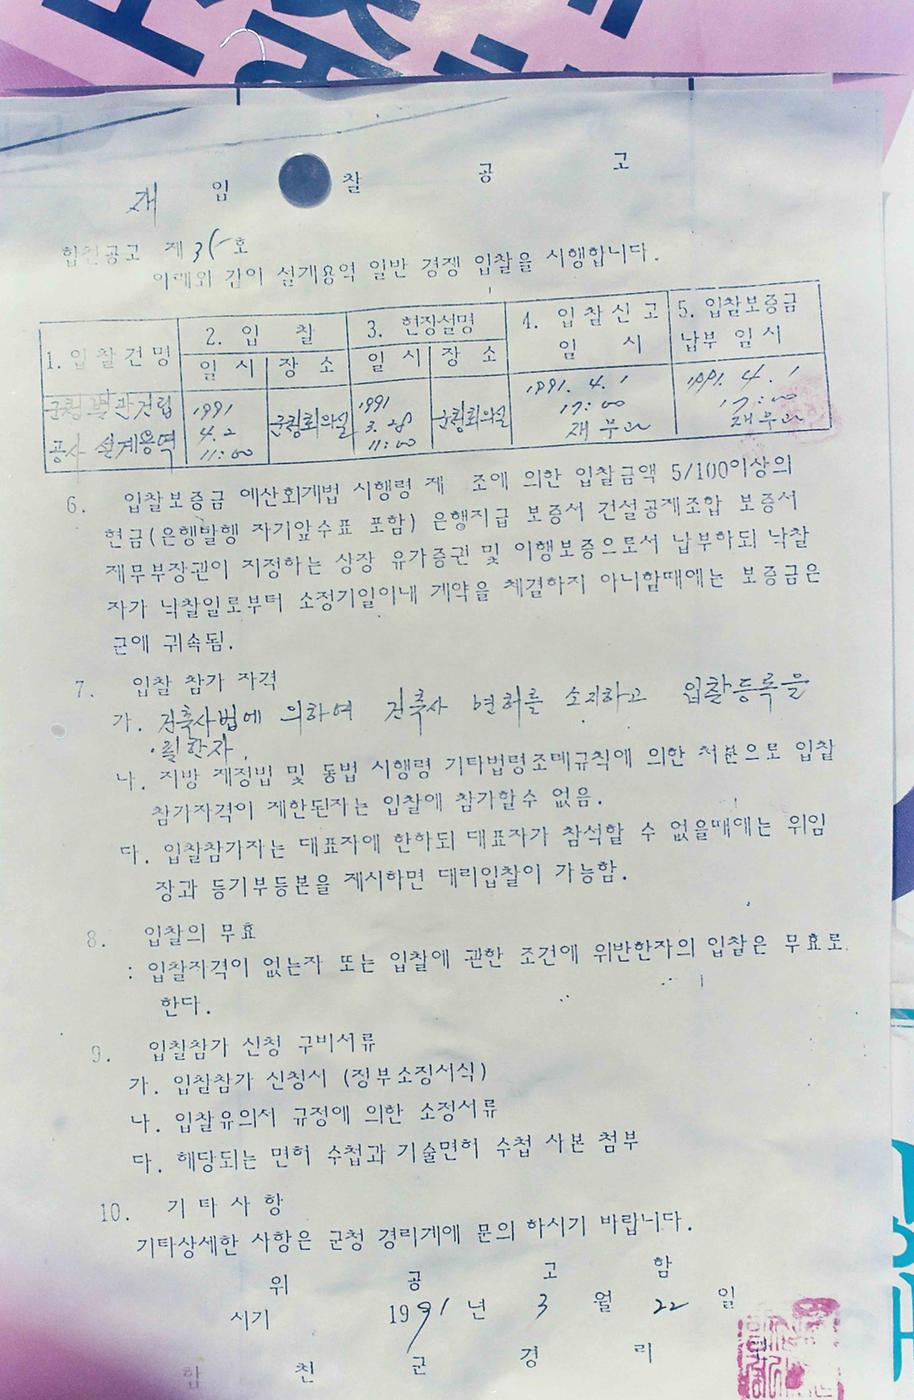 재 입 찰 공 고
합천공고 제 35 호
아래와 같이 설계용역 일반 경쟁 입찰을 시행합니다.
1. 입찰건명 2. 입 찰 3. 현장설명 4. 입찰신고 일 시 5. 입찰보증금 납부 일시
일 시 장 소 일 시 장 소
군청 별관건립 공사 설계용역 1991 4.2 11:00 군청회의실 1991 3.28 11:00 군청회의실 1991. 4. 1 17:00 재무과 1991. 4. 1 17:00 재무과
6. 입찰보증금 예산회계법 시행령 제 조에 의한 입찰금액 5/100이상의
현금(은행발행 자기앞수표 포함) 은행지급 보증서 건설공제조합 보증서
재무부장관이 지정하는 상장 유가증권 및 이행보증으로서 납부하되 낙찰
자가 낙찰일로부터 소정기일이내 계약을 체결하지 아니할때에는 보증금은
군에 귀속됨.
7. 입찰 참가 자격
가. 건축사법에 의하여 건축사 면허를 소지하고 입찰등록을
필한자.
나. 지방 재정법 및 동법 시행령 기타법령조례규칙에 의한 처분으로 입찰
참가자격이 제한된자는 입찰에 참가할수 없음.
다. 입찰참가자는 대표자에 한하되 대표자가 참석할 수 없을때에는 위임
장과 등기부등본을 제시하면 대리입찰이 가능함.
8. 입찰의 무효
: 입찰자격이 없는자 또는 입찰에 관한 조건에 위반한자의 입찰은 무효로
한다.
9. 입찰참가 신청 구비서류
가. 입찰참가 신청서 (정부소정서식)
나. 입찰유의서 규정에 의한 소정서류
다. 해당되는 면허 수첩과 기술면허 수첩 사본 첨부
10. 기 타 사 항
기타상세한 사항은 군청 경리계에 문의 하시기 바랍니다.
위 공 고 함
서기 1991 년 3 월 22 일
합 천 군 경 리